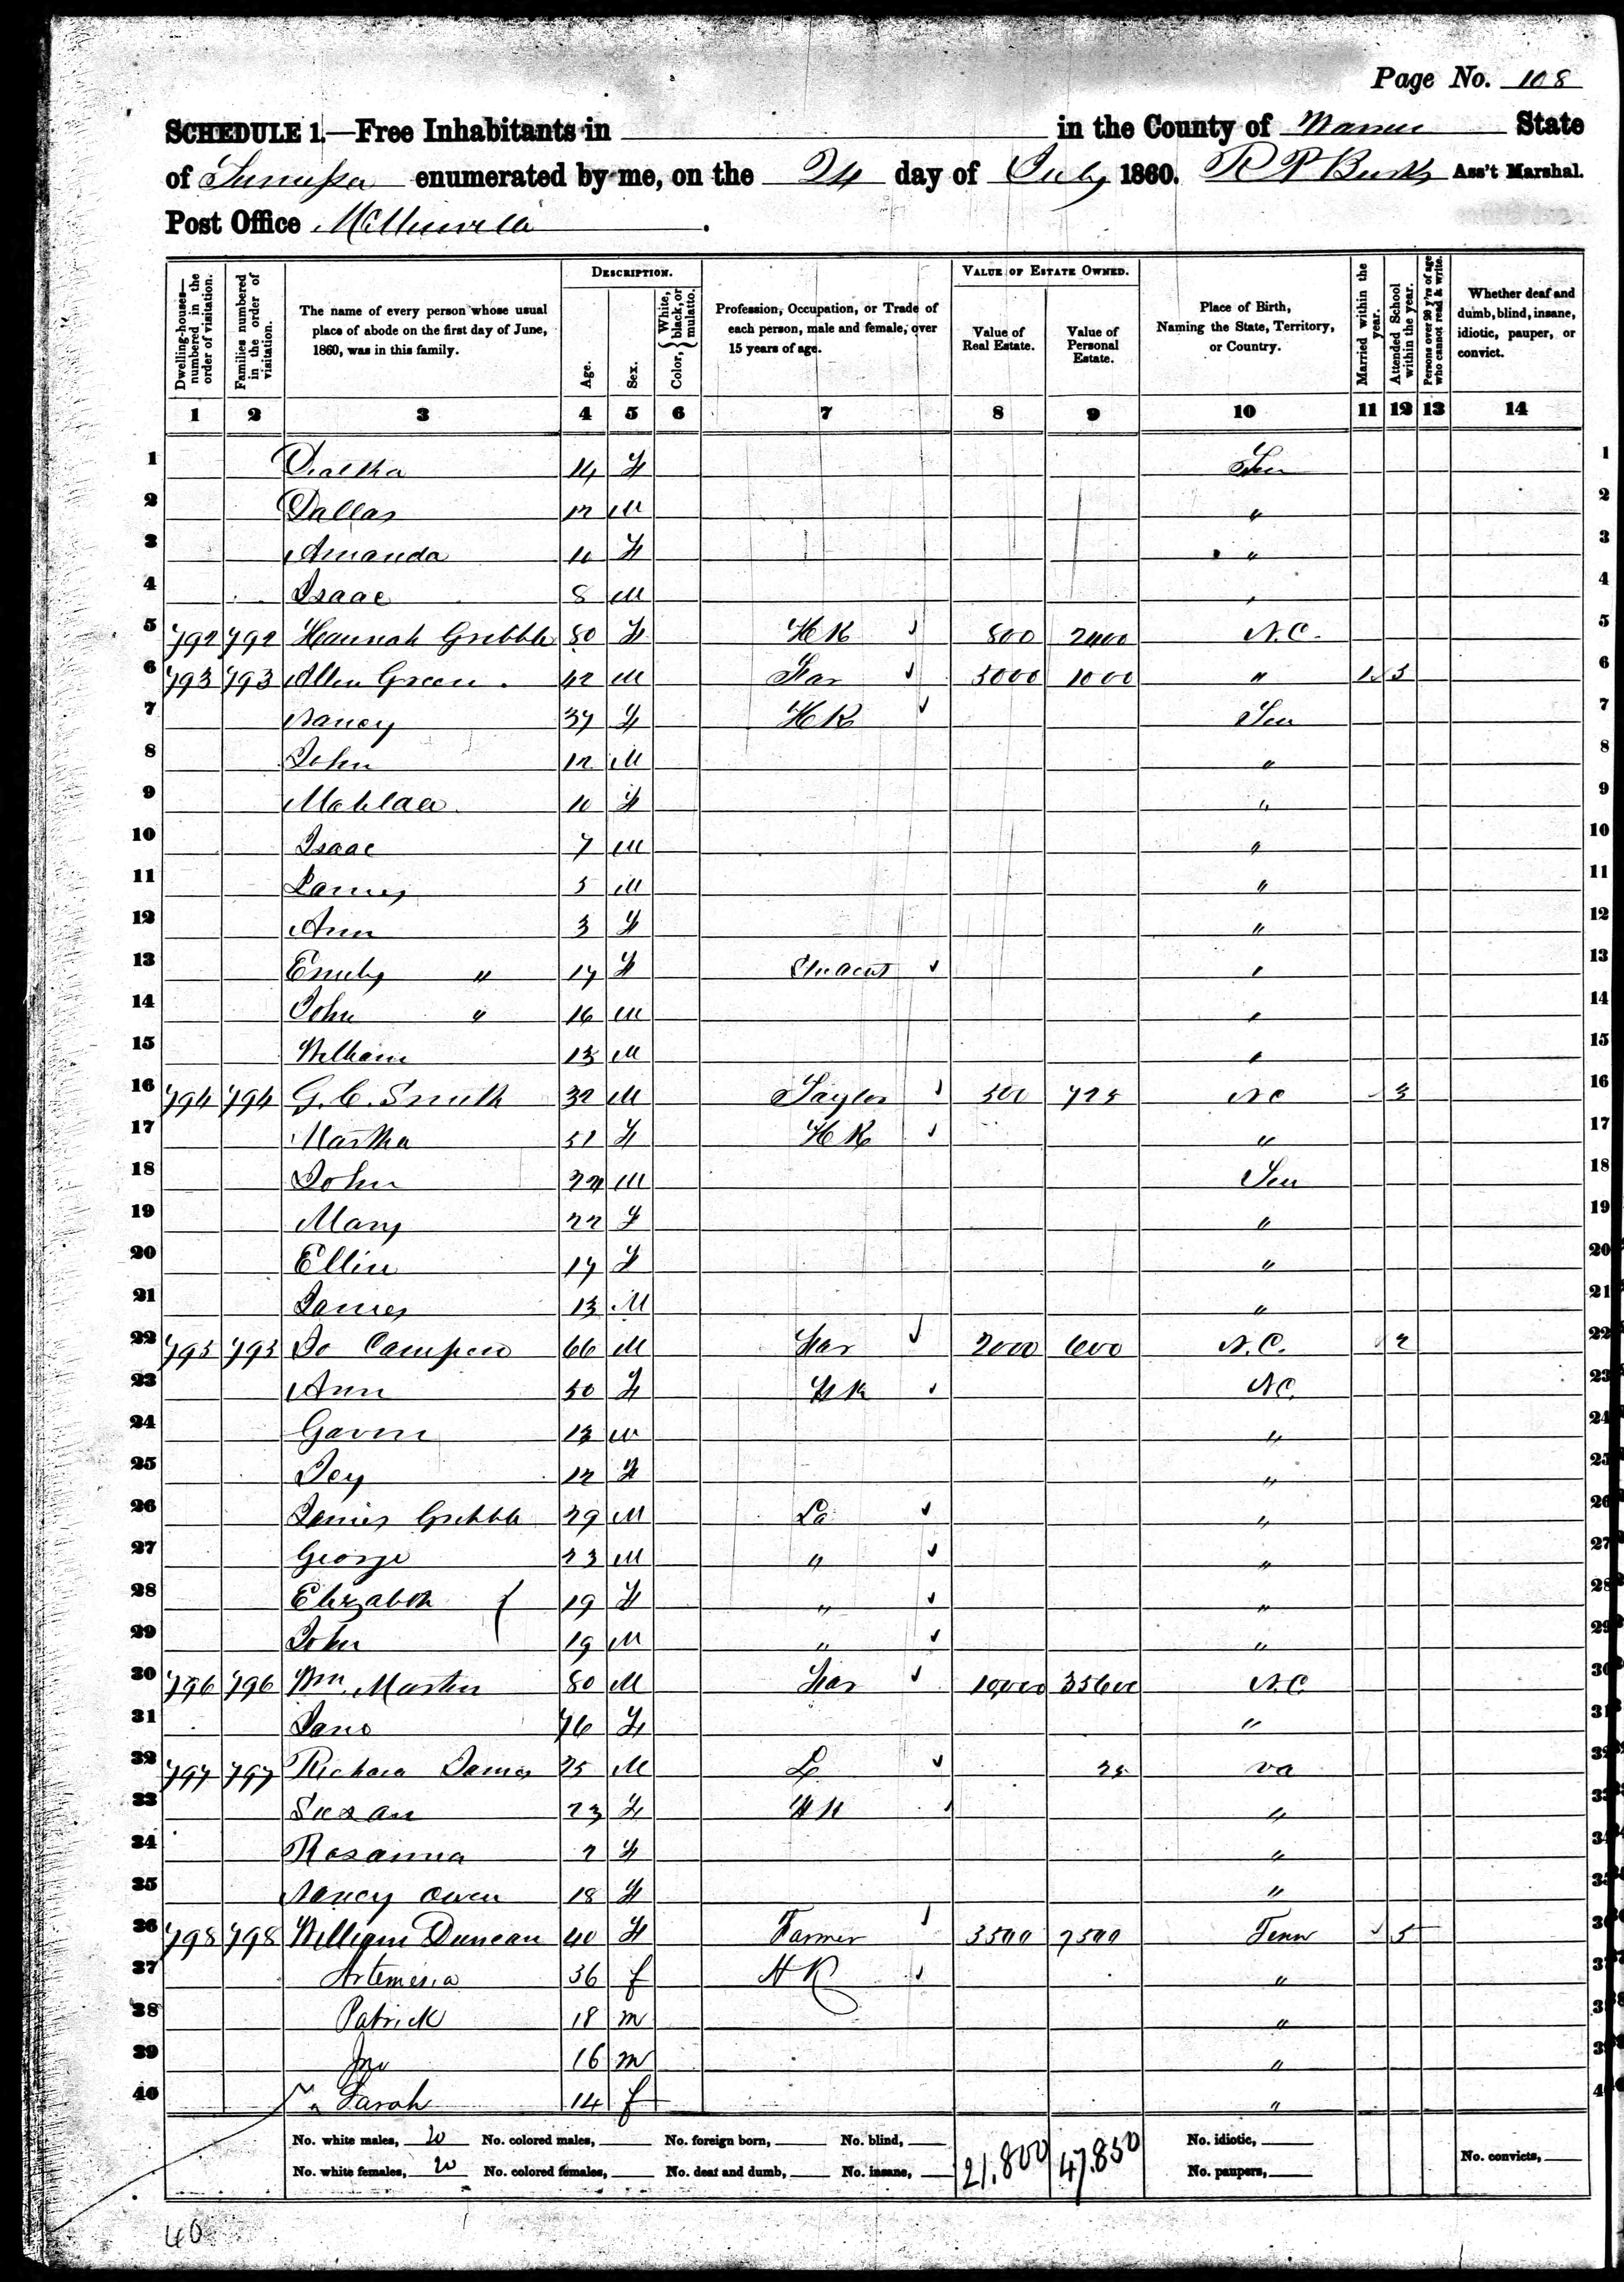 Page No. 108
SCHEDULE 1.—Free Inhabitants in in the County of Warren State
of enumerated by me, on the 24 day of July 1860. R P Ass't Marshal.
Post Office
Dwelling-houses—numbered in the order of visitation.
Families numbered in the order of visitation.
The name of every person whose usual place of abode on the first day of June, 1860, was in this family.
DESCRIPTION.
Age.
Sex.
Color, { White, black, or mulatto.
Profession, Occupation, or Trade of each person, male and female, over 15 years of age.
VALUE OF ESTATE OWNED.
Value of Real Estate.
Value of Personal Estate.
Place of Birth, Naming the State, Territory, or Country.
Married within the year.
Attended School within the year.
Persons over 20 y'rs of age who cannot read & write.
Whether deaf and dumb, blind, insane, idiotic, pauper, or convict.
1 2 3 4 5 6 7 8 9 10 11 12 13 14
1 14 F Ten 1
2 Dallas 12 M " 2
3 Amanda 10 F " 3
4 Isaac 8 M " 4
5 792 792 Hannah Gribble 80 F H K 800 2400 N.C. 5
6 793 793 Allen Green 42 M Far 5000 1000 " 1 5 6
7 Nancy 37 F H K Ten 7
8 John 12 M " 8
9 10 F " 9
10 Isaac 7 M " 10
11 5 M " 11
12 Ann 3 F " 12
13 Emily " 17 F Student " 13
14 John " 16 M " 14
15 William 13 M " 15
16 794 794 G. C. Smith 32 M Taylor 500 725 N C 3 16
17 Martha 51 F H K " 17
18 John 24 M Ten 18
19 Mary 22 F " 19
20 Ellin 17 F " 20
21 James 13 M " 21
22 795 795 66 M Far 2000 600 N.C. 2 22
23 Ann 50 F H K N C 23
24 13 M " 24
25 12 F " 25
26 James Gribble 29 M La " 26
27 George 23 M " " 27
28 Elizabeth { 19 F " " 28
29 John 19 M " " 29
30 796 796 Wm. Martin 80 M Far 10,000 35600 N.C. 30
31 Jane 76 F " 31
32 797 797 Richard James 25 M L 25 Va 32
33 Susan 23 F H K " 33
34 Rosanna 2 F " 34
35 Nancy Owen 18 F " 35
36 798 798 William Duncan 40 F Farmer 3500 7500 Tenn 5 36
37 Artemesia 36 f H K " 37
38 Patrick 18 m " 38
39 Jno 16 m " 39
40 Sarah 14 f " 40
No. white males, 20 No. colored males, No. foreign born, No. blind, 21.800 47.850 No. idiotic,
No. white females, 20 No. colored females, No. deaf and dumb, No. insane, No. paupers, No. convicts,
40